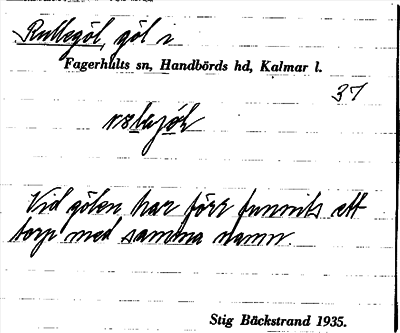 Rullegöl, göl i
Fagerhults sn, Handbörds hd, Kalmar l.
37
Vid gölen har förr funnits ett
torp med samma namn.
Stig Bäckstrand 1935.